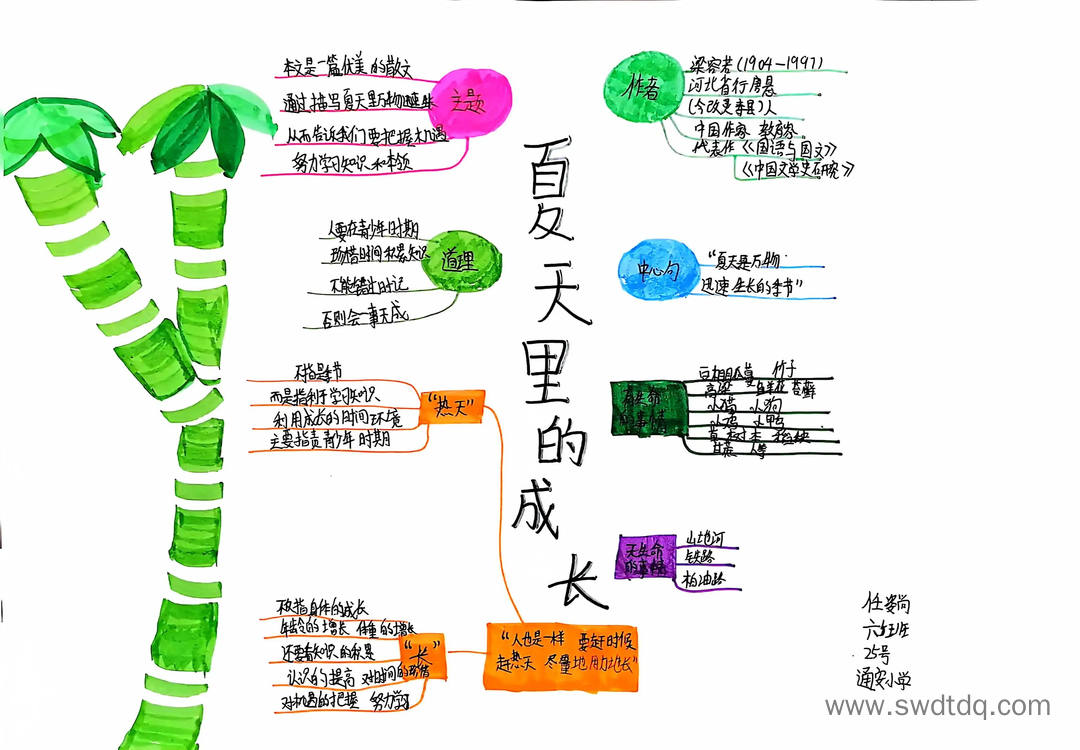 夏天里的成长
主题
本文是一篇优美的散文
通过描写夏天里万物迅速生长
从而告诉我们要把握机遇
努力学习知识和本领
作者
梁容若(1904-1997)
河北省行唐县
人
中国作家 教育家
代表作《国语与国文》
《中国文学史研究》
道理
人要在青少年时期
珍惜时间积累知识
不能错过时记
否则会一事无成
中心句
“夏天是万物
迅速生长的季节”
“热天”
不指是季节
而是指利于学习知识
利用成长的时间环境
主要指责青少年时期
有生命
的事情
竹子
高粱 苔藓
小猫 小狗
小鸡 小鸭
甘蔗
无生命
的事情
山地河
铁路
柏油路
“人也是一样 要赶时候
赶热天 尽量地用力地长”
“长”
不指身体的成长
年龄的增长 体重的增长
还要看知识的积累
认识的提高 对时间的珍惜
对机遇的把握 努力学习
六年班
25号
通安小学
www.swdtdq.com